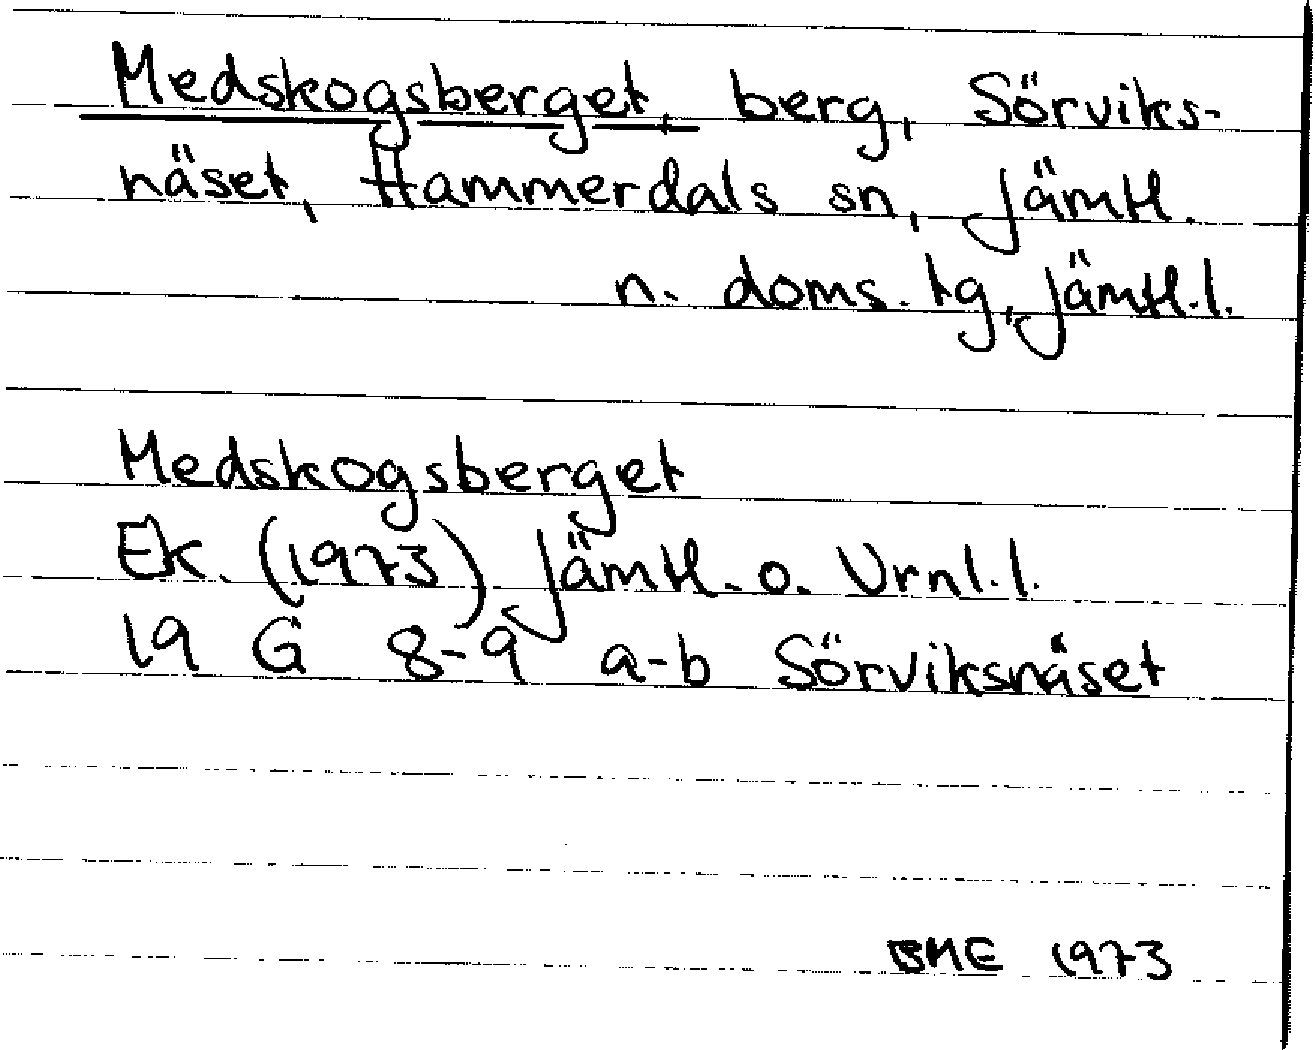 Medskogsberget, berg, Sörviks-
näset, Hammerdals sn, Jämtl.
n. doms. tg, Jämtl. l.
Medskogsberget
Ek. (1973) Jämtl. o. Vrnl. l.
19 G 8-9 a-b Sörviksnäset
BME 1973